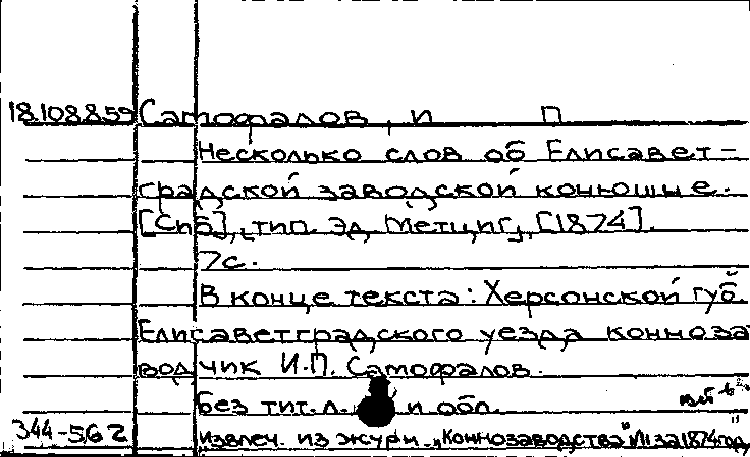 18.108.859 Самофалов, И П
Несколько слов об Елисавет-
градской заводской конюшне.
[Спб], "тип. Эд. Метциг", [1874].
7с.
В конце текста: Херсонской губ.
Елисаветградского уезда конноза
водчик И.П. Самофалов.
без тит. л. и обл.
344-562 извлеч. из журн. „Коннозаводства" №1 за 1874 год